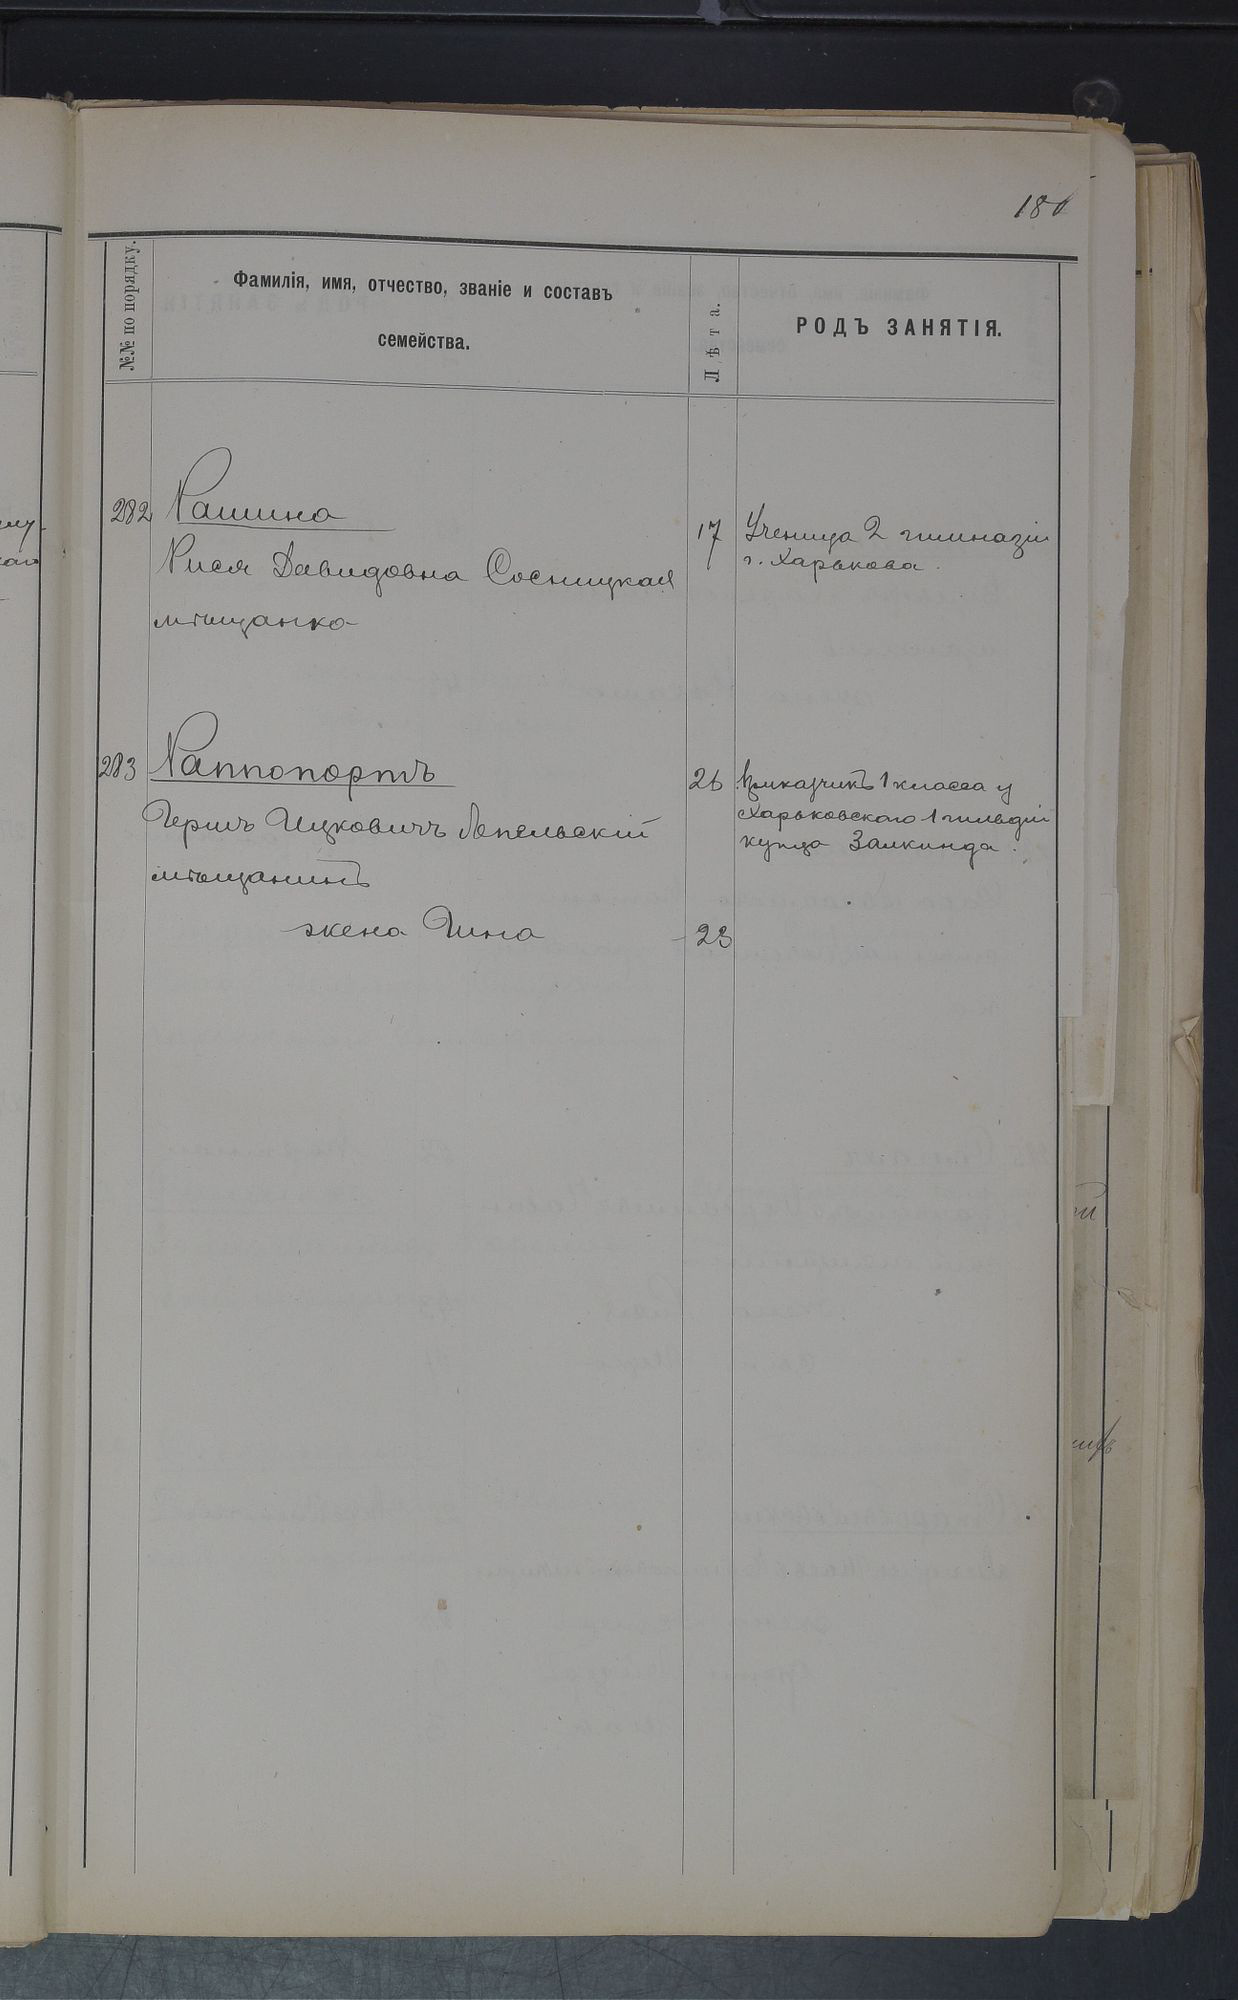 180
№№ по порядку.
Фамилія, имя, отчество, званіе и составъ
семейства.
Лѣта.
РОДЪ ЗАНЯТІЯ.
282 Рашина
Рися Давидовна Сосницкая
мѣщанка
17 Ученица 2 гимназіи
г. Харькова.
283 Раппопортъ
Гершъ Ицковичъ Лепельскій
мѣщанинъ
26 Приказчикъ 1 класса у
Харьковскаго 1 гильдіи
купца Залкинда.
жена Гина 23